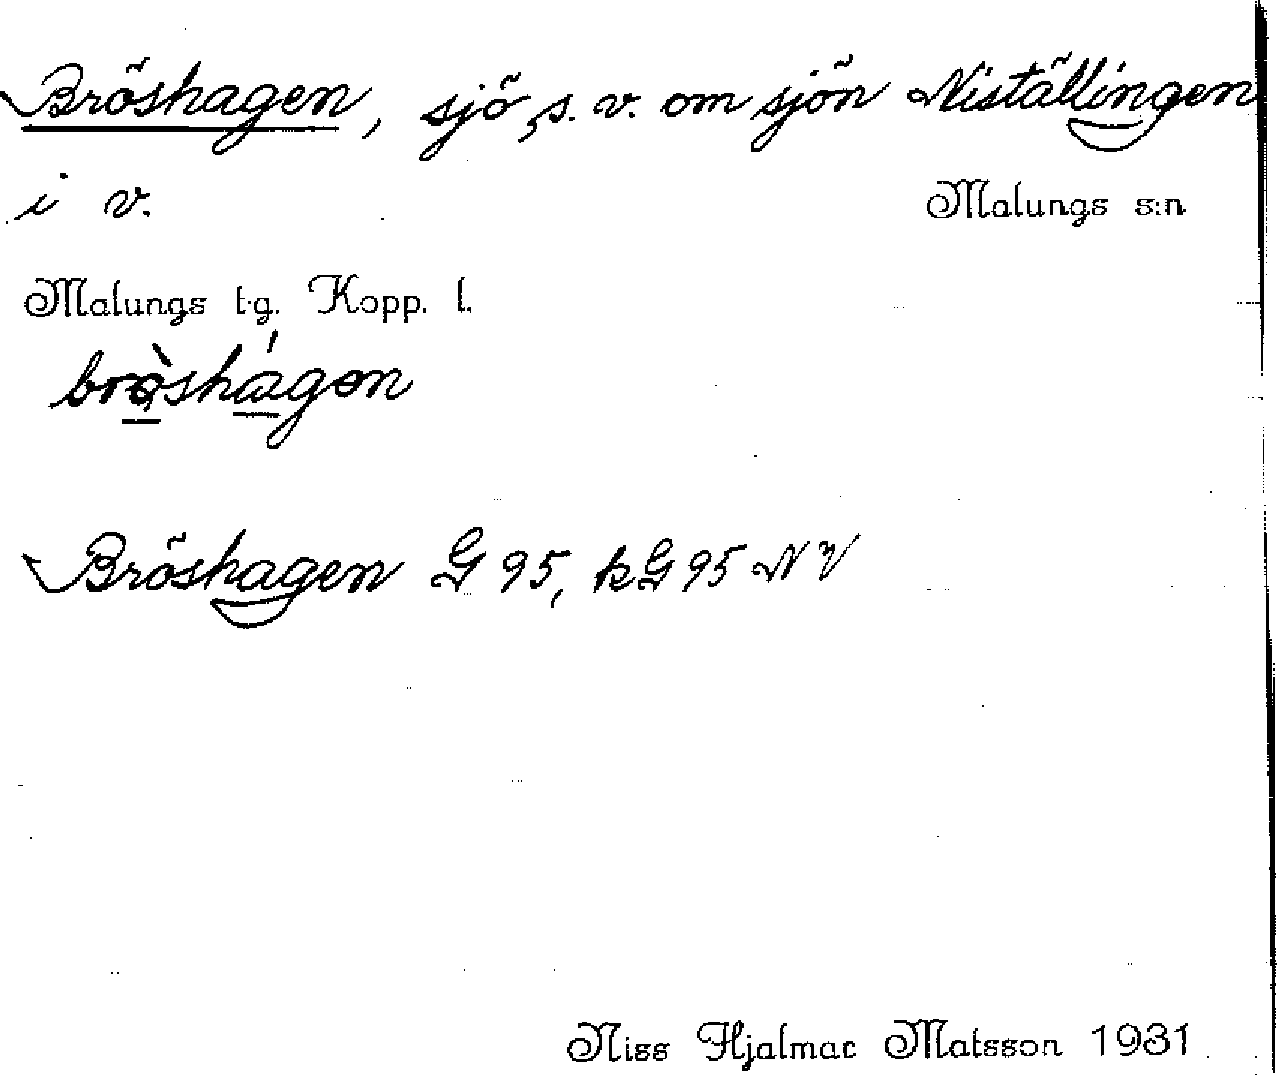 Bröshagen, sjö, s. v. om sjön Niställingen
i v.
Malungs s:n
Malungs t.g. Kopp. l.
bròshágen
Bröshagen G 95, kG 95 NV
Niss Hjalmar Matsson 1931